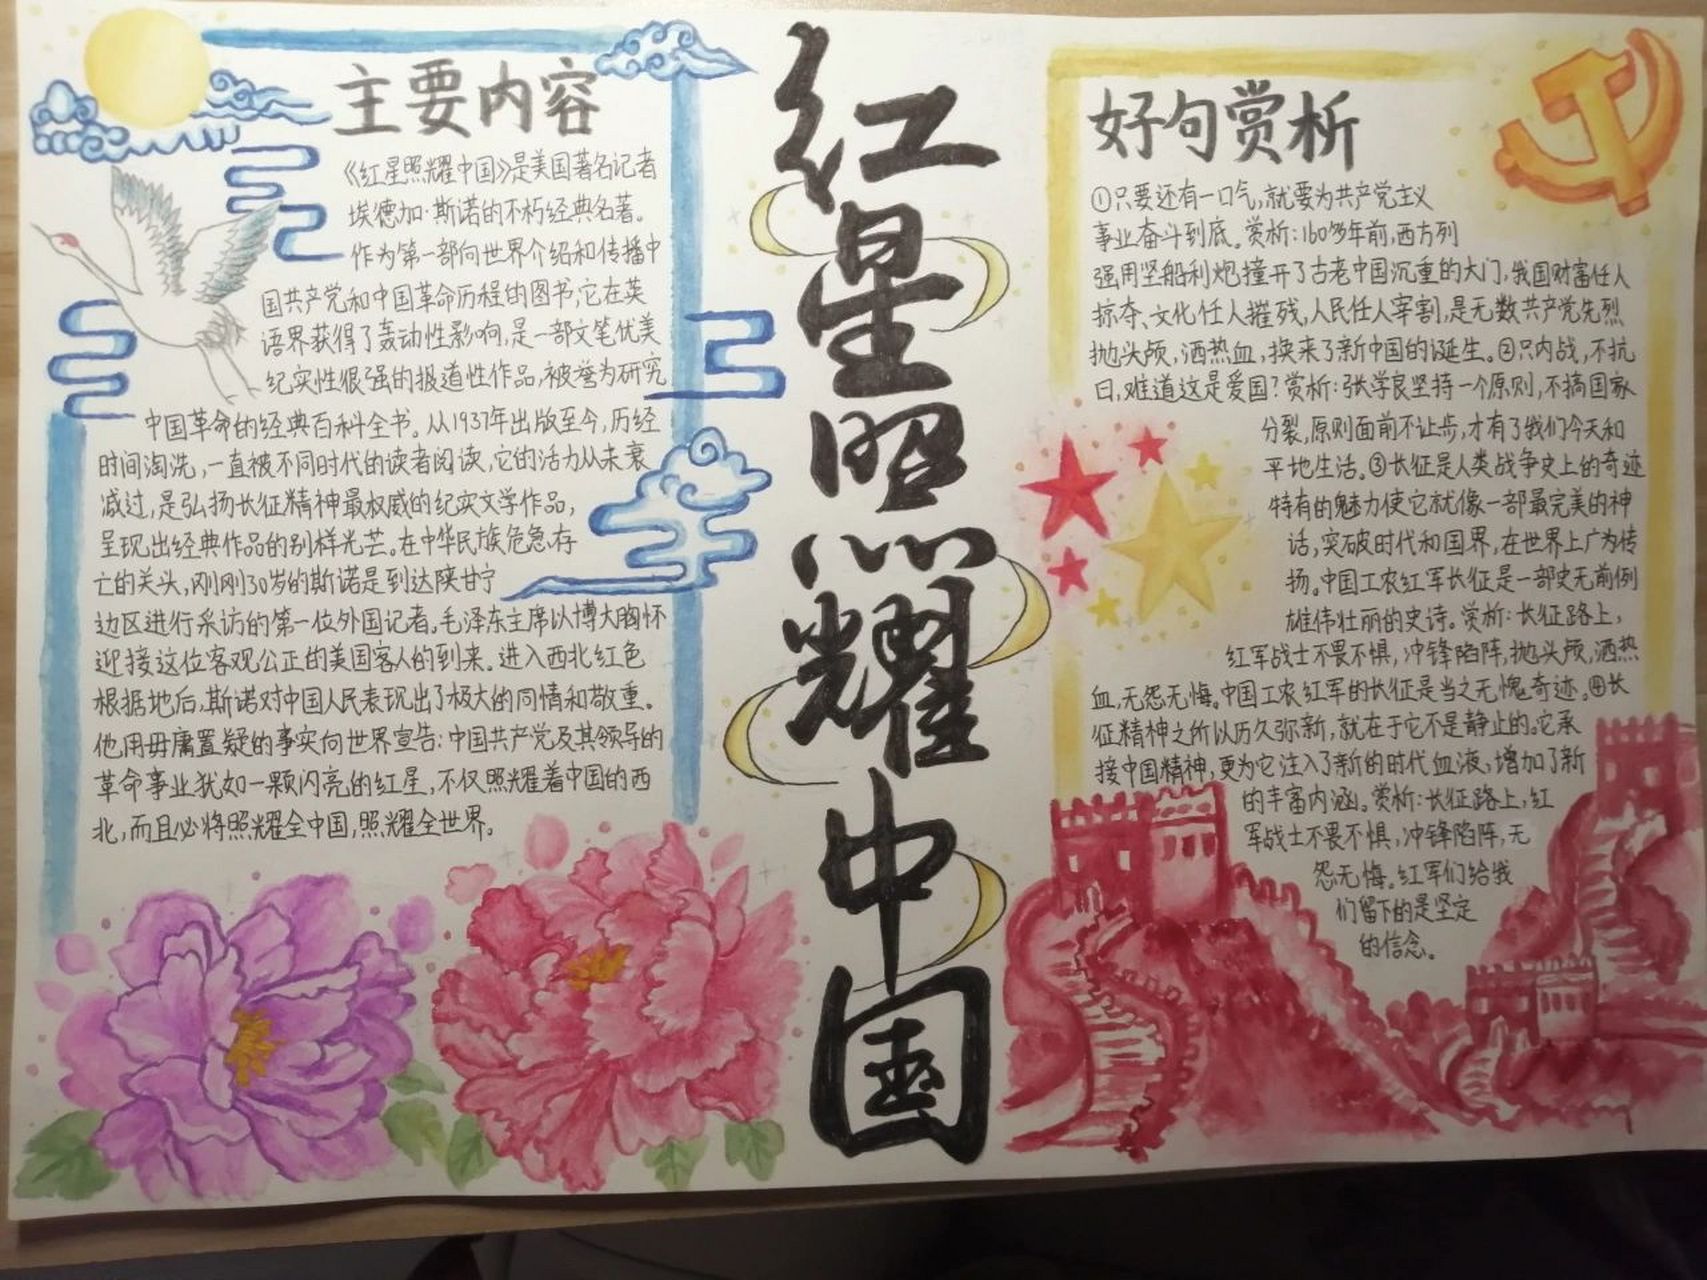 主要内容
《红星照耀中国》是美国著名记者
埃德加·斯诺的不朽经典名著。
作为第一部向世界介绍和传播中
国共产党和中国革命历程的图书,它在英
语界获得了轰动性影响,是一部文笔优美
纪实性很强的报道性作品,被誉为研究
中国革命的经典百科全书。从1937年出版至今,历经
时间淘洗,一直被不同时代的读者阅读,它的活力从未衰
减过,是弘扬长征精神最权威的纪实文学作品,
呈现出经典作品的别样光芒。在中华民族危急存
亡的关头,刚刚30岁的斯诺是到达陕甘宁
边区进行采访的第一位外国记者。毛泽东主席以博大胸怀
迎接这位客观公正的美国客人的到来。进入西北红色
根据地后,斯诺对中国人民表现出了极大的同情和敬重。
他用毋庸置疑的事实向世界宣告:中国共产党及其领导的
革命事业犹如一颗闪亮的红星,不仅照耀着中国的西
北,而且必将照耀全中国,照耀全世界。
红星照耀中国
好句赏析
①只要还有一口气,就要为共产党主义
事业奋斗到底。赏析:160多年前,西方列
强用坚船利炮撞开了古老中国沉重的大门,我国财富任人
掠夺、文化任人摧残,人民任人宰割,是无数共产党先烈
抛头颅,洒热血,换来了新中国的诞生。②只内战,不抗
日,难道这是爱国?赏析:张学良坚持一个原则,不搞国家
分裂,原则面前不让步,才有了我们今天和
平地生活。③长征是人类战争史上的奇迹
特有的魅力使它就像一部最完美的神
话,突破时代和国界,在世界上广为传
扬。中国工农红军长征是一部史无前例
雄伟壮丽的史诗。赏析:长征路上,
红军战士不畏不惧,冲锋陷阵,抛头颅,洒热
血,无怨无悔。中国工农红军的长征是当之无愧奇迹。④长
征精神之所以历久弥新,就在于它不是静止的。它承
接中国精神,更为它注入了新的时代血液,增加了新
的丰富内涵。赏析:长征路上,红
军战士不畏不惧,冲锋陷阵,无
怨无悔。红军们给我
们留下的是坚定
的信念。